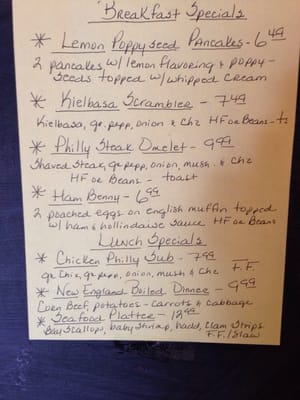 Breakfast Specials
* Lemon Poppyseed Pancakes - 6.49
2 pancakes w/ lemon flavoring & poppy-
seeds topped w/ whipped cream
* Kielbasa Scrambler - 7.49
Kielbasa, gr. pepp, onion & chz HF or Beans - ts
* Philly Steak Omelet - 9.99
Shaved Steak, gr. pepp, onion, mush. & chz
HF or Beans - toast
* Ham Benny - 6.99
2 poached eggs on english muffin topped
w/ ham & hollindaise sauce HF or Beans
Lunch Specials
* Chicken Philly Sub - 7.99
gr. Chix, gr. pepp, onion, mush & chz F.F.
* New England Boiled Dinner - 9.99
Corn Beef, potatoes - carrots & cabbage
* Seafood Platter - 12.99
Bay Scallops, baby shrimp, hadd, clam strips
F.F. / Slaw